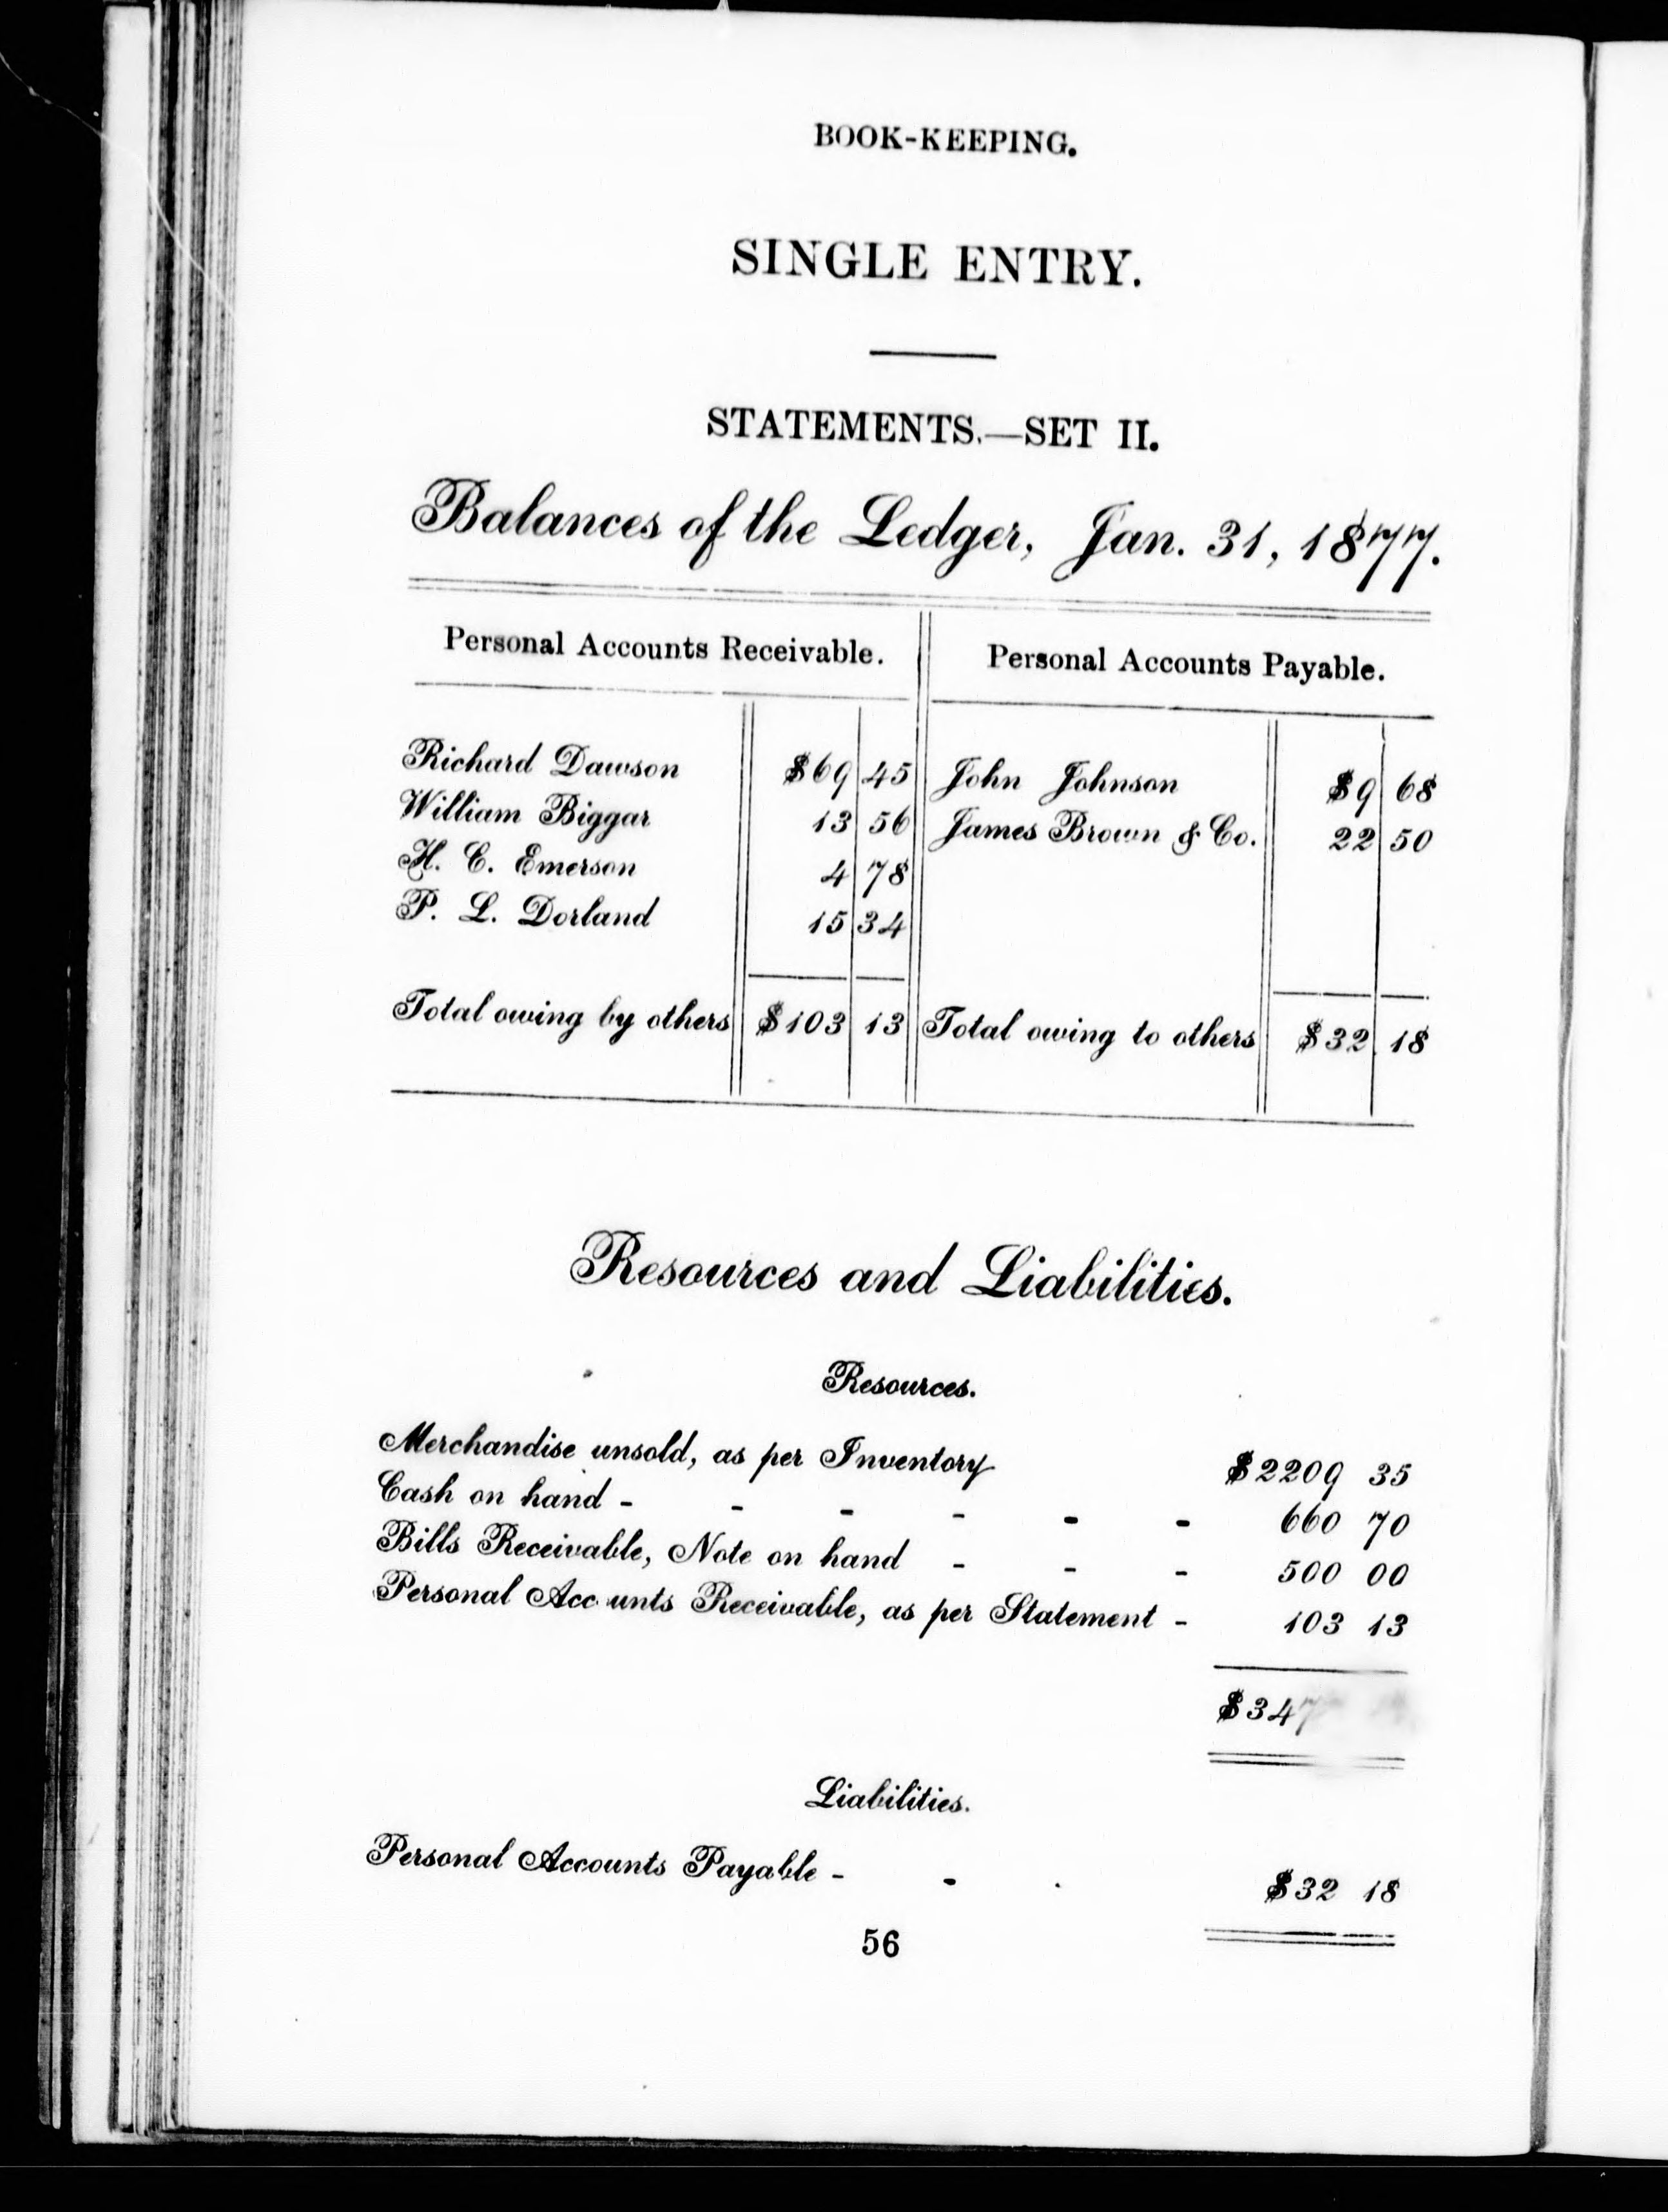 BOOK-KEEPING.
SINGLE ENTRY.
STATEMENTS.—SET II.
Balances of the Ledger, Jan. 31, 1877.
Personal Accounts Receivable. Personal Accounts Payable.
Richard Dawson $69 45 John Johnson $9 68
William Biggar 13 56 James Brown & Co. 22 50
H. C. Emerson 4 78
P. L. Dorland 15 34
Total owing by others $103 13 Total owing to others $32 18
Resources and Liabilities.
Resources.
Merchandise unsold, as per Inventory $2209 35
Cash on hand - - - - - - 660 70
Bills Receivable, Note on hand - - - 500 00
Personal Acc unts Receivable, as per Statement - 103 13
Liabilities.
Personal Accounts Payable - - . $32 18
56